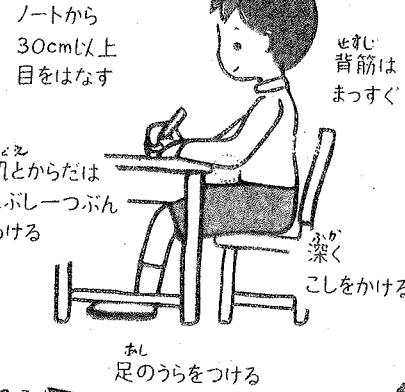 ノートから
30cm以上
目をはなす
せすじ
背筋は
まっすぐ
とからだは
ぶし一つぶん
ける
ふか
深く
こしをかける
あし
足のうらをつける